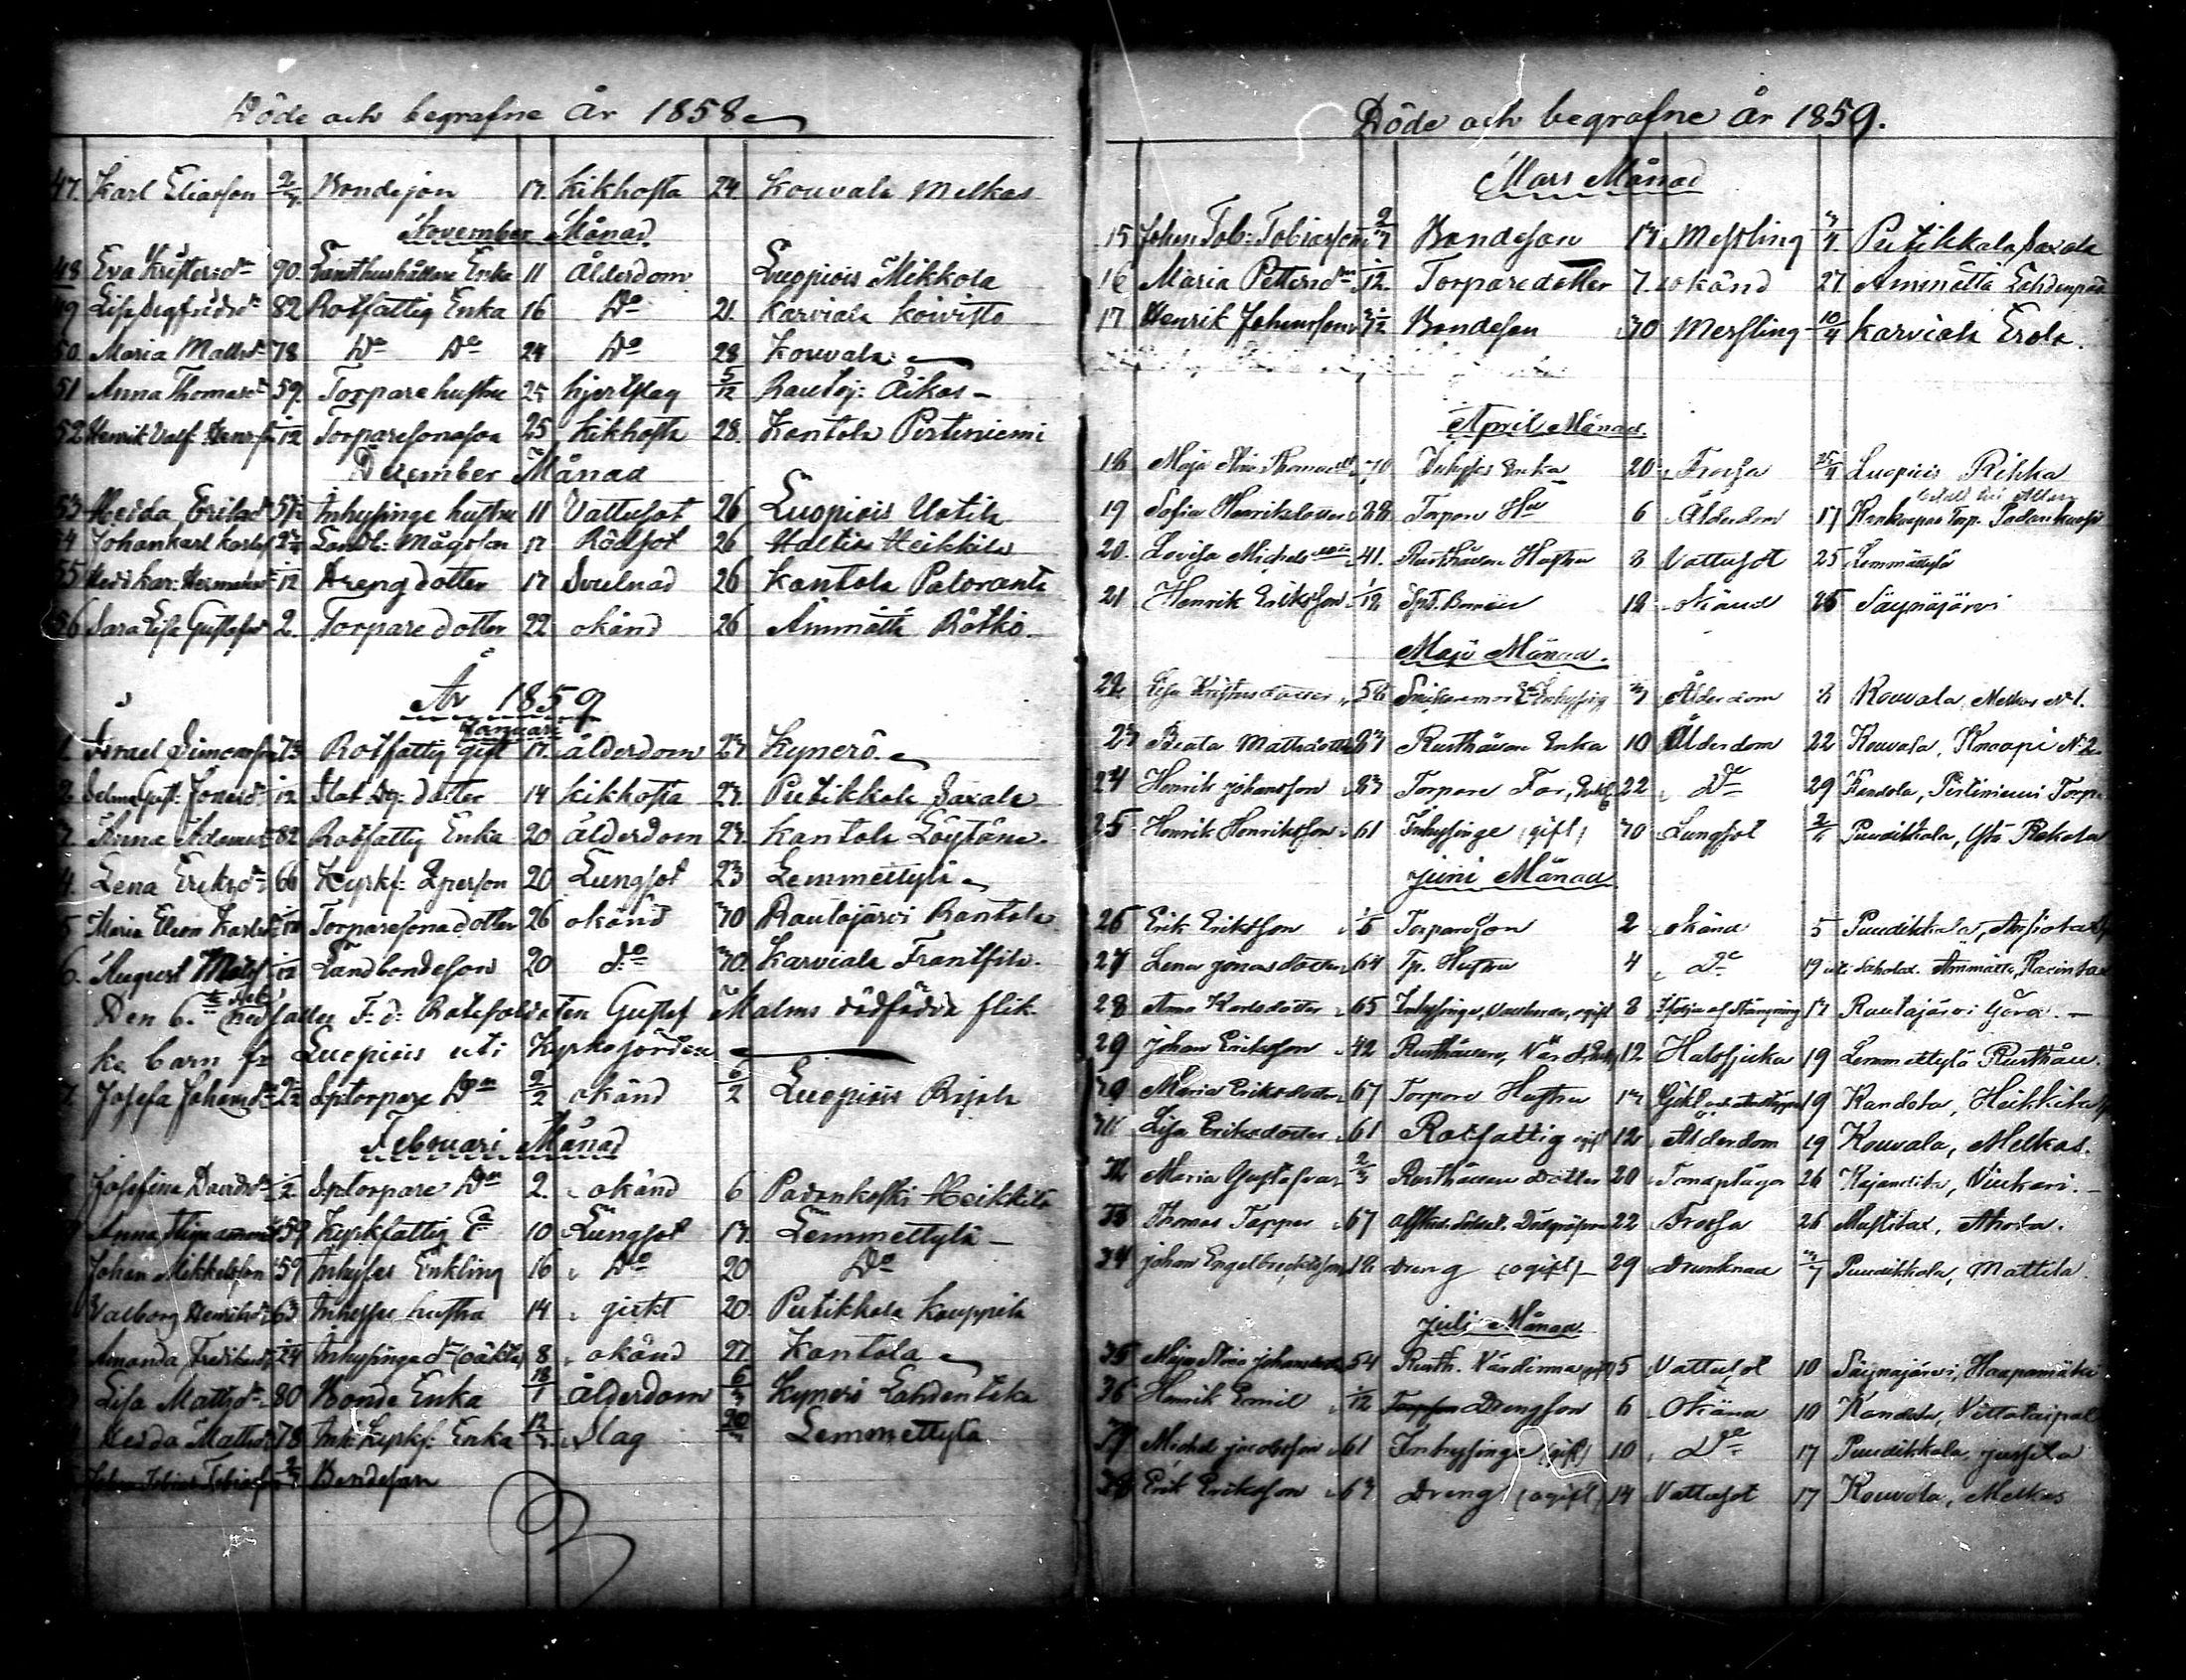 Döde och begrafne År 1858
47. Karl Eliasson Bondeson 17. Kikhosta 24. Kouvala Melkas
November Månad
48 Eva Kristersdr 90. Enka 11 Ålderdom Luopiois Mikkola
49 Lisa Sigfridsdr 82 Rotfattig Enka 16 Do 21. Karviala Koivisto
50. Maria Mattsdr 78 Do Do 24 Do 28 Kouvala
51 Anna Thomasdr 59. Torpare hustru 25 hjertslag 5/12 Rautoj: Äikas
52 Henrik Valf. Henr:s 1/12 Torparesonason 25 Kikhosta 28. Kantola Pertiniemi
December Månad
53 Hedda Eriksdr Inhysinge hustru 11 Vattusot 26 Luopiois Uotila
54 Johan Karl Karls Landb: Mågson 17 Rödsot 26 Haltia Heikkilä
55 Hedv. Kar: Hermansdr 1/12 Drengdotter 17 Svulnad 26 Kantola Patoranta
56 Sara Lisa Gustafsdr 2. Torpare dotter 22 okänd 26 Ämmättä Rätkö
År 1859
Januari
1. Israel Simonsson 73 Rotfattig gift 17. ålderdom 23 Kynerö
2. Selma Gust: Jonasdr 1/12 Stat Dg: dotter 14 Kikhosta 23. Putikkala Saxala
3. Anna Adamsdr 82 Rotfattig Enka 20 ålderdom 23. Kantola Löytäne
4. Lena Eriksdr 66 Kyrkf: Qperson 20 Lungsot 23 Lemmettylä
5 Maria Eleon Karlsdr Torparesonadotter 26 okänd 30 Rautajärvi Rantala
6. August Matss 1/12 Landbondeson 20 do 30. Karviala Frantsila
Den 6. nedsattes F. d: Rotesoldaten Gustaf Malms dödfödda flik-
ka barn fr Luopiois uti Kyrkojorden
7. Josefa Johansdr Sptorpare Dr 2/2 okänd 6/2 Luopiois
Februari Månad
Josefina Davidsdr 1/2 Sptorpare Dr 2. okänd 6 Padankoski Heikkilä
Anna 59 Kyrkfattig Ea 10 Lungsot 13. Lemmettylä
Johan Mikkelsson 59 Inhyses Enkling 16 Do 20 Do
Valborg Henriksdr 63 Inhyses hustru 14 gickt 20. Putikkala Kauppila
Amanda Fredriksdr Inhysinge dr (oäkta) 8 okänd 27 Kantola
Lisa Mattsdr 80 Bonde Enka 18/1 ålderdom 6/3 Kynerö Lahdentaka
Hedda Mattsdr 78 Inh. Kyrkf: Enka Slag 20/3 Lemmettylä
Johan Tobias Tobiass 2/3 Bondeson
Döde och begrafne år 1859.
Mars Månad
15 Johan Tob: Tobiasson 2/3 Bondeson 13 Messling Putikkala Saxala
16 Maria Pettersdr 1/12. Torparedotter 7. okänd 27. Ämmättä Lahdenpää
17 Henrik Johansson Bondeson 30 Messling 10/4 Karviala Erola
April Månad.
18 Maja Stina Thomasdr 70 Inhyses Enka 20 Frossa 25/4 Luopiois Rikka
19 Sofia Henriksdotter 88 Torpare Hu 6 Ålderdom 17 Torp. Padankoski
20. Lovisa Michelsdr 41. Rusthållare Hustru 8 Vattusot 25 Lemmättylä
21 Henrik Eriksson 1/12 18 okänd 25 Säynäjärvi
Maji Månad.
22. Lisa Kristersdotter 58 Inhysing 3 Ålderdom 8 Kouvala, Melkas No 1.
23 Beata Mattsdotter 83 Rusthållare Enka 10 Ålderdom 22 Kouvala, Knaapi No 2.
24 Henrik Johansson 83 Torpare Far, Enkl 22 Do 29 Kandola, Pertiniemi Torp
25 Henrik Henriksson 61 Inhysinge (gift) 30 Lungsot Puudikkala, Rekola
Juni Månad
26 Erik Eriksson 1/6 Torpareson 2 okänd 5 Puudikkala,
27 Lena Jonasdotter 64 Tp. Hustru 4 Do 19 Ämmättä,
28 Anna Karlsdotter 65 Inhysinge, ogift 8 af Stängning 13 Rautajärvi Görä
29 Johan Eriksson 42 Rusthållare, 12 Halssjuka 19 Lemmettylä Rusthåll.
30 Maria Eriksdotter 67 Torpare Hustru 13 19 Kandola, Heikkilä
31 Lisa Eriksdotter 61 Rotfattig ogift 12 Ålderdom 19 Kouvala, Melkas.
32 Maria Gustafva 2/3 Rusthållare Dotter 20 Tandplågor 26
33 Thomas Tapper 67 Afsked. Soldat. Dödgräfvare 22 Frossa 26
34 Johan Engelbrektsson 18 dreng (ogift) 29 Drunknad 3/7 Puudikkala, Mattila
Juli Månad
35 Maja Stina Johansdotter 54 Rusth. Värdinna (gift) 5 Vattusot 10 Säynäjärvi, Haapamäki
36 Henrik Emil 1/12 Drengson 6 Okänd 10 Kandola, Vittotaipal
37 Michel Jacobsson 61 Inhysinge (gift) 10 Do 17 Puudikkala, Jussila
38 Erik Eriksson 63 Dreng (ogift) 14 Vattusot 17 Kouvola, Melkas